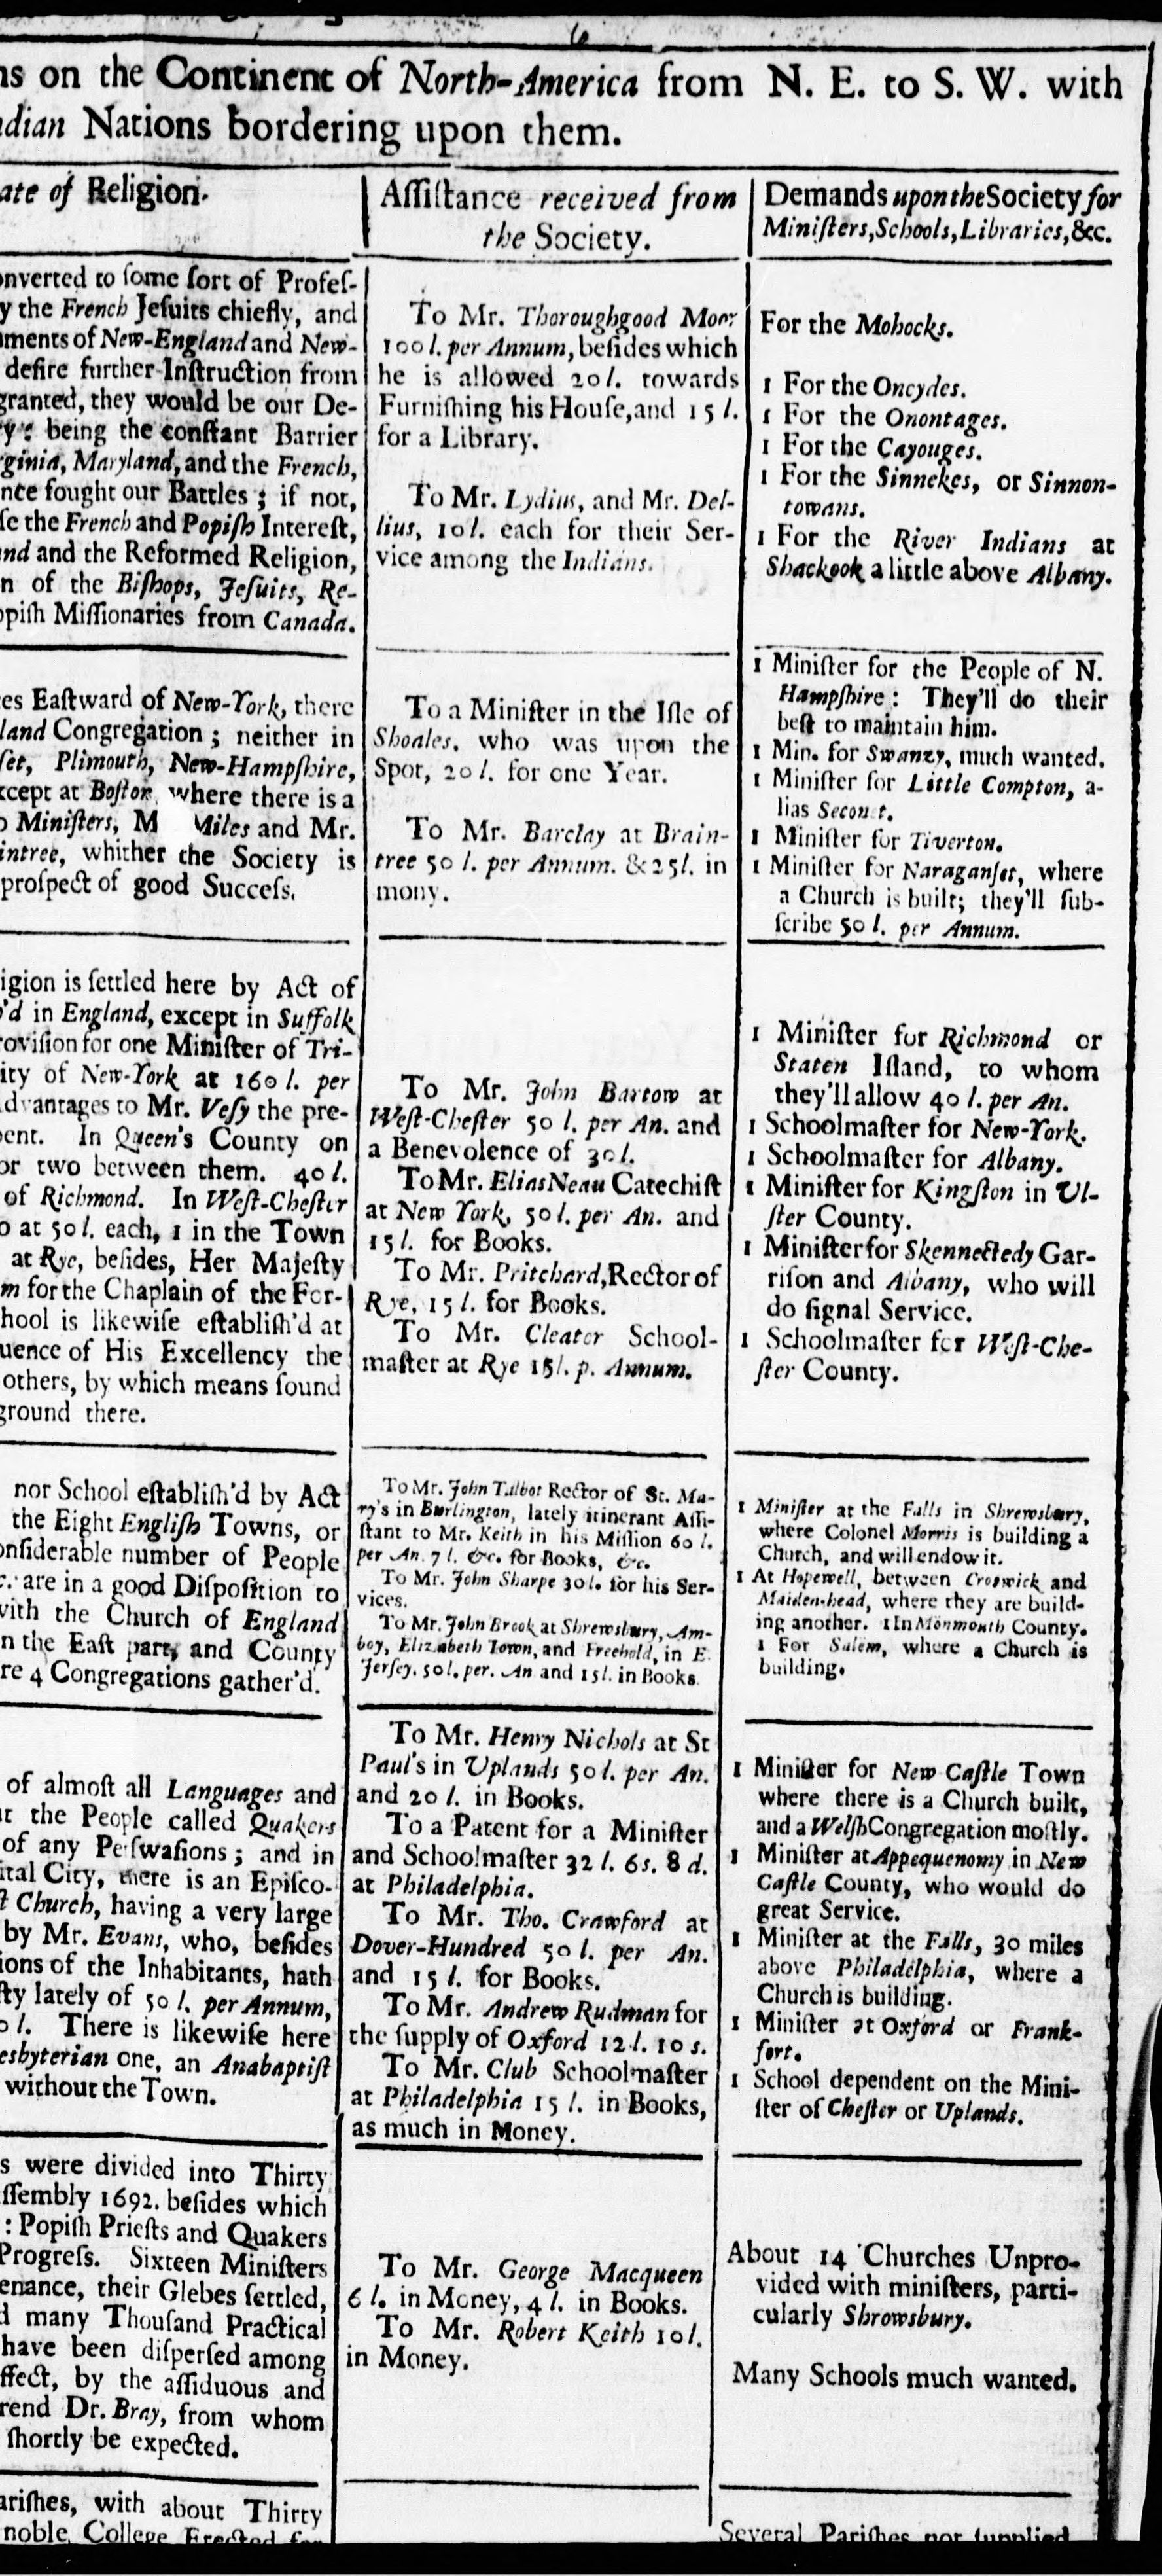 6
ns on the Continent of North-America from N. E. to S. W. with
dian Nations bordering upon them.
ate of Religion.
onverted to ſome ſort of Profeſ-
y the French Jeſuits chiefly, and
ments of New-England and New-
deſire further Inſtruction from
granted, they would be our De-
y: being the conſtant Barrier
ginia, Maryland, and the French,
nce fought our Battles; if not,
ſe the French and Popiſh Intereſt,
nd and the Reformed Religion,
n of the Biſhops, Jeſuits, Re-
opiſh Miſſionaries from Canada.
es Eaſtward of New-York, there
land Congregation; neither in
ſet, Plimouth, New-Hampſhire,
xcept at Boſton, where there is a
o Miniſters, M Miles and Mr.
intree, whither the Society is
proſpect of good Succeſs.
igion is ſettled here by Act of
'd in England, except in Suffolk
roviſion for one Miniſter of Tri-
ity of New-York at 160 l. per
dvantages to Mr. Veſy the pre-
bent. In Queen's County on
or two between them. 40 l.
of Richmond. In Weſt-Cheſter
o at 50 l. each, 1 in the Town
at Rye, beſides, Her Majeſty
m for the Chaplain of the For-
hool is likewiſe eſtabliſh'd at
uence of His Excellency the
others, by which means ſound
ground there.
nor School eſtabliſh'd by Act
the Eight Engliſh Towns, or
onſiderable number of People
c. are in a good Diſpoſition to
with the Church of England
n the Eaſt part, and County
re 4 Congregations gather'd.
of almoſt all Languages and
ut the People called Quakers
of any Perſwaſions; and in
ital City, there is an Epiſco-
t Church, having a very large
by Mr. Evans, who, beſides
ions of the Inhabitants, hath
ſty lately of 50 l. per Annum,
o l. There is likewiſe here
esbyterian one, an Anabaptiſt
without the Town.
s were divided into Thirty
ſſembly 1692. beſides which
: Popiſh Prieſts and Quakers
Progreſs. Sixteen Miniſters
enance, their Glebes ſettled,
d many Thouſand Practical
have been diſperſed among
ffect, by the aſſiduous and
rend Dr. Bray, from whom
ſhortly be expected.
ariſhes, with about Thirty
noble College Erected for
Aſſiſtance received from
the Society.
To Mr. Thoroughgood Moor
100 l. per Annum, beſides which
he is allowed 20 l. towards
Furniſhing his Houſe, and 15 l.
for a Library.
To Mr. Lydius, and Mr. Del-
lius, 10 l. each for their Ser-
vice among the Indians.
To a Miniſter in the Iſle of
Shoales, who was upon the
Spot, 20 l. for one Year.
To Mr. Barclay at Brain-
tree 50 l. per Annum. & 25 l. in
mony.
To Mr. John Bartow at
Weſt-Cheſter 50 l. per An. and
a Benevolence of 30 l.
To Mr. Elias Neau Catechiſt
at New York, 50 l. per An. and
15 l. for Books.
To Mr. Pritchard, Rector of
Rye, 15 l. for Books.
To Mr. Cleator School-
maſter at Rye 15 l. p. Annum.
To Mr. John Talbot Rector of St. Ma-
ry's in Burlington, lately itinerant Aſſi-
ſtant to Mr. Keith in his Miſſion 60 l.
per An. 7 l. &c. for Books, &c.
To Mr. John Sharpe 30 l. for his Ser-
vices.
To Mr. John Brook at Shrewsbury, Am-
boy, Elizabeth Town, and Freehold, in E.
Jerſey. 50 l. per. An and 15 l. in Books.
To Mr. Henry Nichols at St
Paul's in Uplands 50 l. per An.
and 20 l. in Books.
To a Patent for a Miniſter
and Schoolmaſter 32 l. 6 s. 8 d.
at Philadelphia.
To Mr. Tho. Crawford at
Dover-Hundred 50 l. per An.
and 15 l. for Books.
To Mr. Andrew Rudman for
the ſupply of Oxford 12 l. 10 s.
To Mr. Club Schoolmaſter
at Philadelphia 15 l. in Books,
as much in Money.
To Mr. George Macqueen
6 l. in Money, 4 l. in Books.
To Mr. Robert Keith 10 l.
in Money.
Demands upon the Society for
Miniſters, Schools, Libraries, &c.
For the Mohocks.
1 For the Oncydes.
1 For the Onontages.
1 For the Cayouges.
1 For the Sinnekes, or Sinnon-
towans.
1 For the River Indians at
Shackook a little above Albany.
1 Miniſter for the People of N.
Hampſhire: They'll do their
beſt to maintain him.
1 Min. for Swanzy, much wanted.
1 Miniſter for Little Compton, a-
lias Seconet.
1 Miniſter for Tiverton.
1 Miniſter for Naraganſet, where
a Church is built; they'll ſub-
ſcribe 50 l. per Annum.
1 Miniſter for Richmond or
Staten Iſland, to whom
they'll allow 40 l. per An.
1 Schoolmaſter for New-York.
1 Schoolmaſter for Albany.
1 Miniſter for Kingſton in Ul-
ſter County.
1 Miniſter for Skennectedy Gar-
riſon and Albany, who will
do ſignal Service.
1 Schoolmaſter for Weſt-Che-
ſter County.
1 Miniſter at the Falls in Shrewsbury,
where Colonel Morris is building a
Church, and will endow it.
1 At Hopewell, between Croswick and
Maiden-head, where they are build-
ing another. 1 In Monmouth County.
1 For Salem, where a Church is
building.
1 Miniſter for New Caſtle Town
where there is a Church built,
and a Welſh Congregation moſtly.
1 Miniſter at Appequenomy in New
Caſtle County, who would do
great Service.
1 Miniſter at the Falls, 30 miles
above Philadelphia, where a
Church is building.
1 Miniſter at Oxford or Frank-
fort.
1 School dependent on the Mini-
ſter of Cheſter or Uplands.
About 14 Churches Unpro-
vided with miniſters, parti-
cularly Shrowsbury.
Many Schools much wanted.
Several Pariſhes not ſupplied